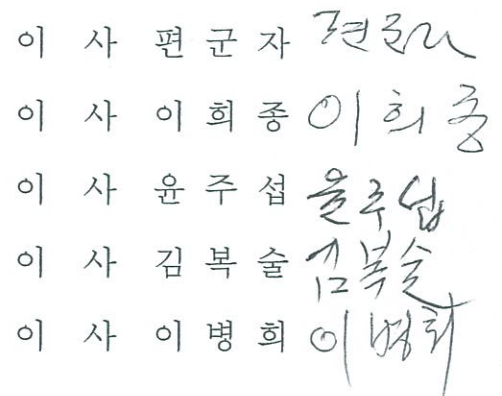 이 사 편 군 자 편군자
이 사 이 희 종 이희종
이 사 윤 주 섭 윤주섭
이 사 김 복 술 김복술
이 사 이 병 희 이병희